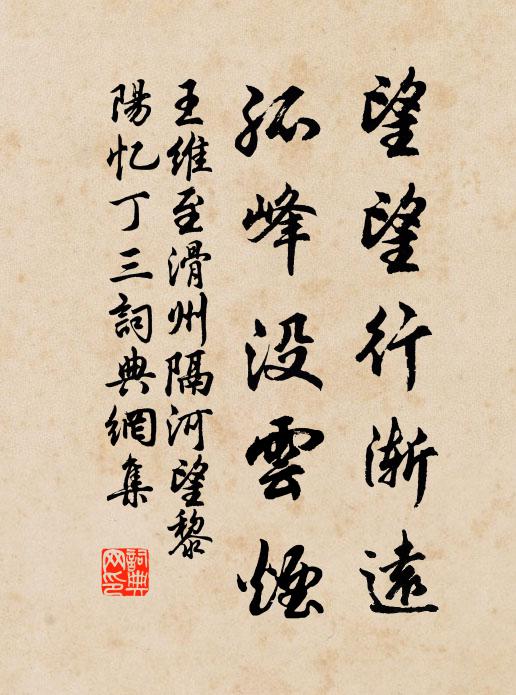 望望行渐遠
孤峰没雲煙
王維至滑州隔河望黎
陽忆丁三詞典網集
詞典
网印